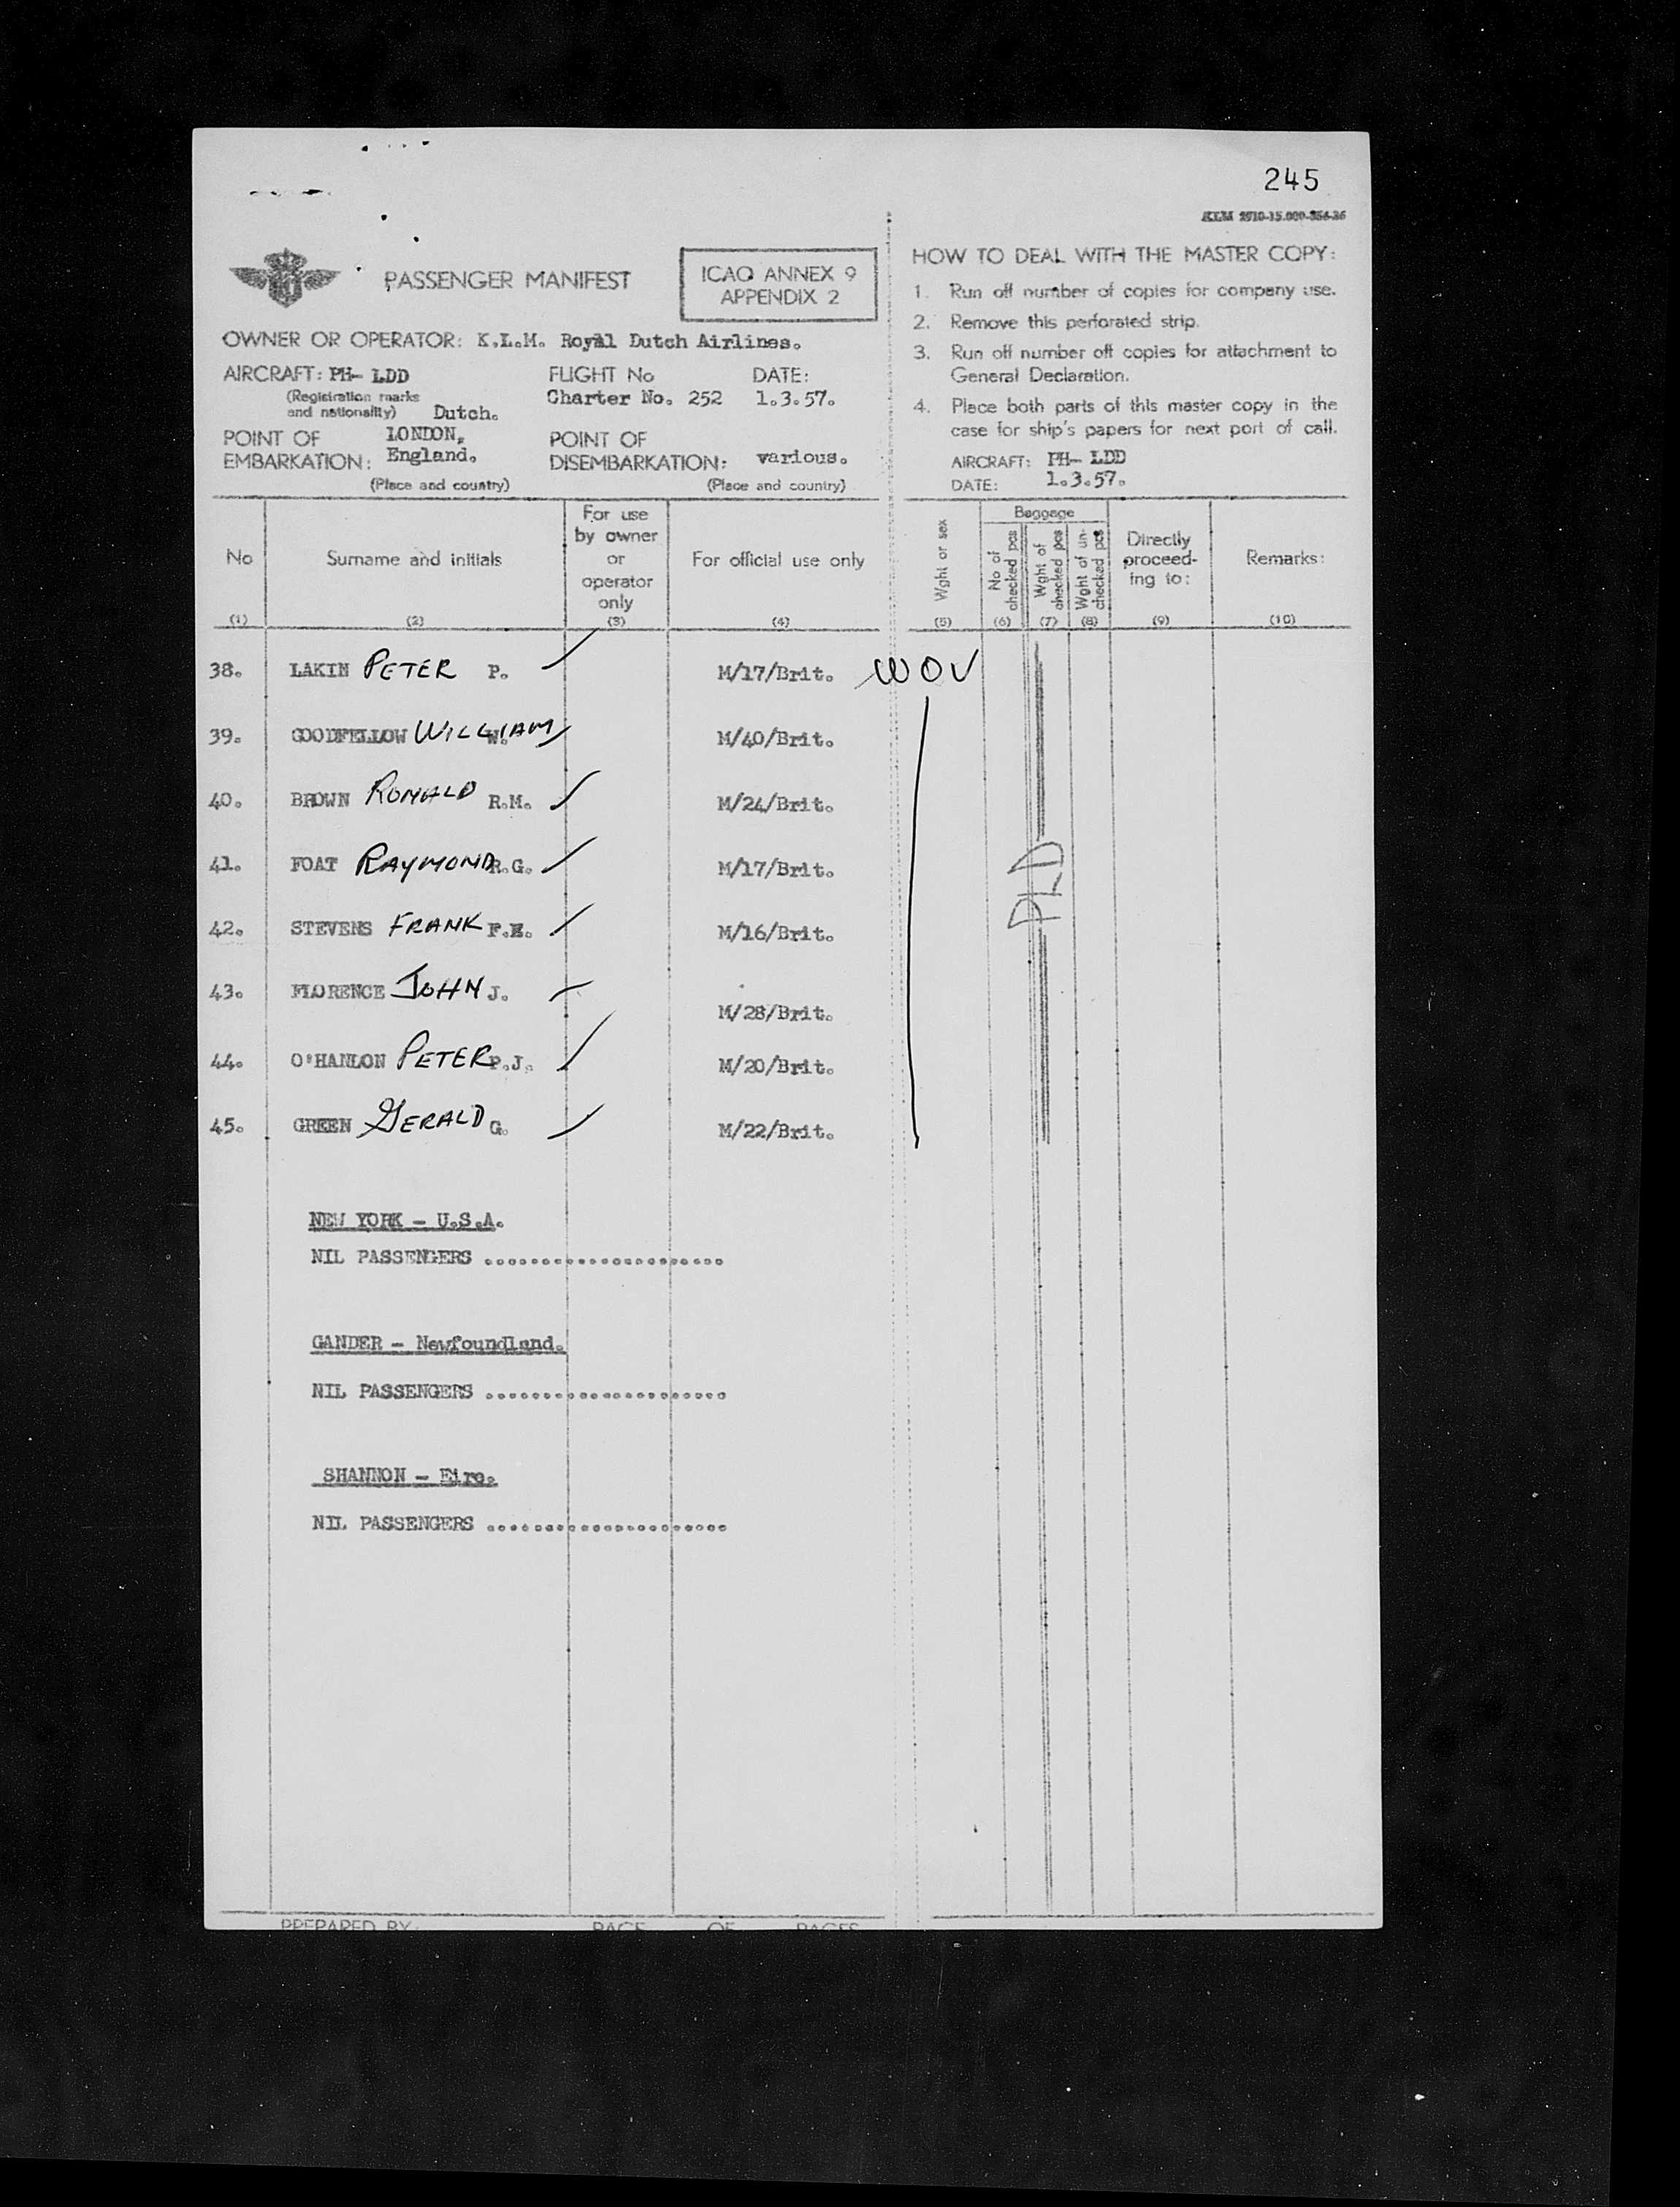 245
KLM 2910-15.000-356-36
PASSENGER MANIFEST
ICAO ANNEX 9
APPENDIX 2
OWNER OR OPERATOR: K.L.M. Royal Dutch Airlines.
AIRCRAFT: PH- LDD
(Registration marks
and nationality) Dutch.
FLIGHT No
Charter No. 252
DATE:
1.3.57.
POINT OF
EMBARKATION:
LONDON,
England.
(Place and country)
POINT OF
DISEMBARKATION: various.
(Place and country)
HOW TO DEAL WITH THE MASTER COPY:
1. Run off number of copies for company use.
2. Remove this perforated strip.
3. Run off number off copies for attachment to
General Declaration.
4. Place both parts of this master copy in the
case for ship's papers for next port of call.
AIRCRAFT: PH- LDD
DATE: 1.3.57.
No
(1)
Surname and initials
(2)
For use
by owner
or
operator
only
(3)
For official use only
(4)
Wght or sex
(5)
Baggage
No of
checked pcs
(6)
Wght of
checked pcs
(7)
Wght of un-
checked pcs
(8)
Directly
proceed-
ing to:
(9)
Remarks:
(10)
38. LAKIN PETER P. M/17/Brit. WOV
39. GOODFELLOW WILLIAM W. M/40/Brit.
40. BROWN RONALD R.M. M/24/Brit.
41. FOAT RAYMOND R.G. M/17/Brit.
42. STEVENS FRANK F.E. M/16/Brit.
43. FLORENCE JOHN J. M/28/Brit.
44. O'HANLON PETER P.J. M/20/Brit.
45. GREEN GERALD G. M/22/Brit.
PLD
NEW YORK - U.S.A.
NIL PASSENGERS ......................
GANDER - Newfoundland.
NIL PASSENGERS ......................
SHANNON - Eire.
NIL PASSENGERS ......................
PREPARED BY: PAGE OF PAGES